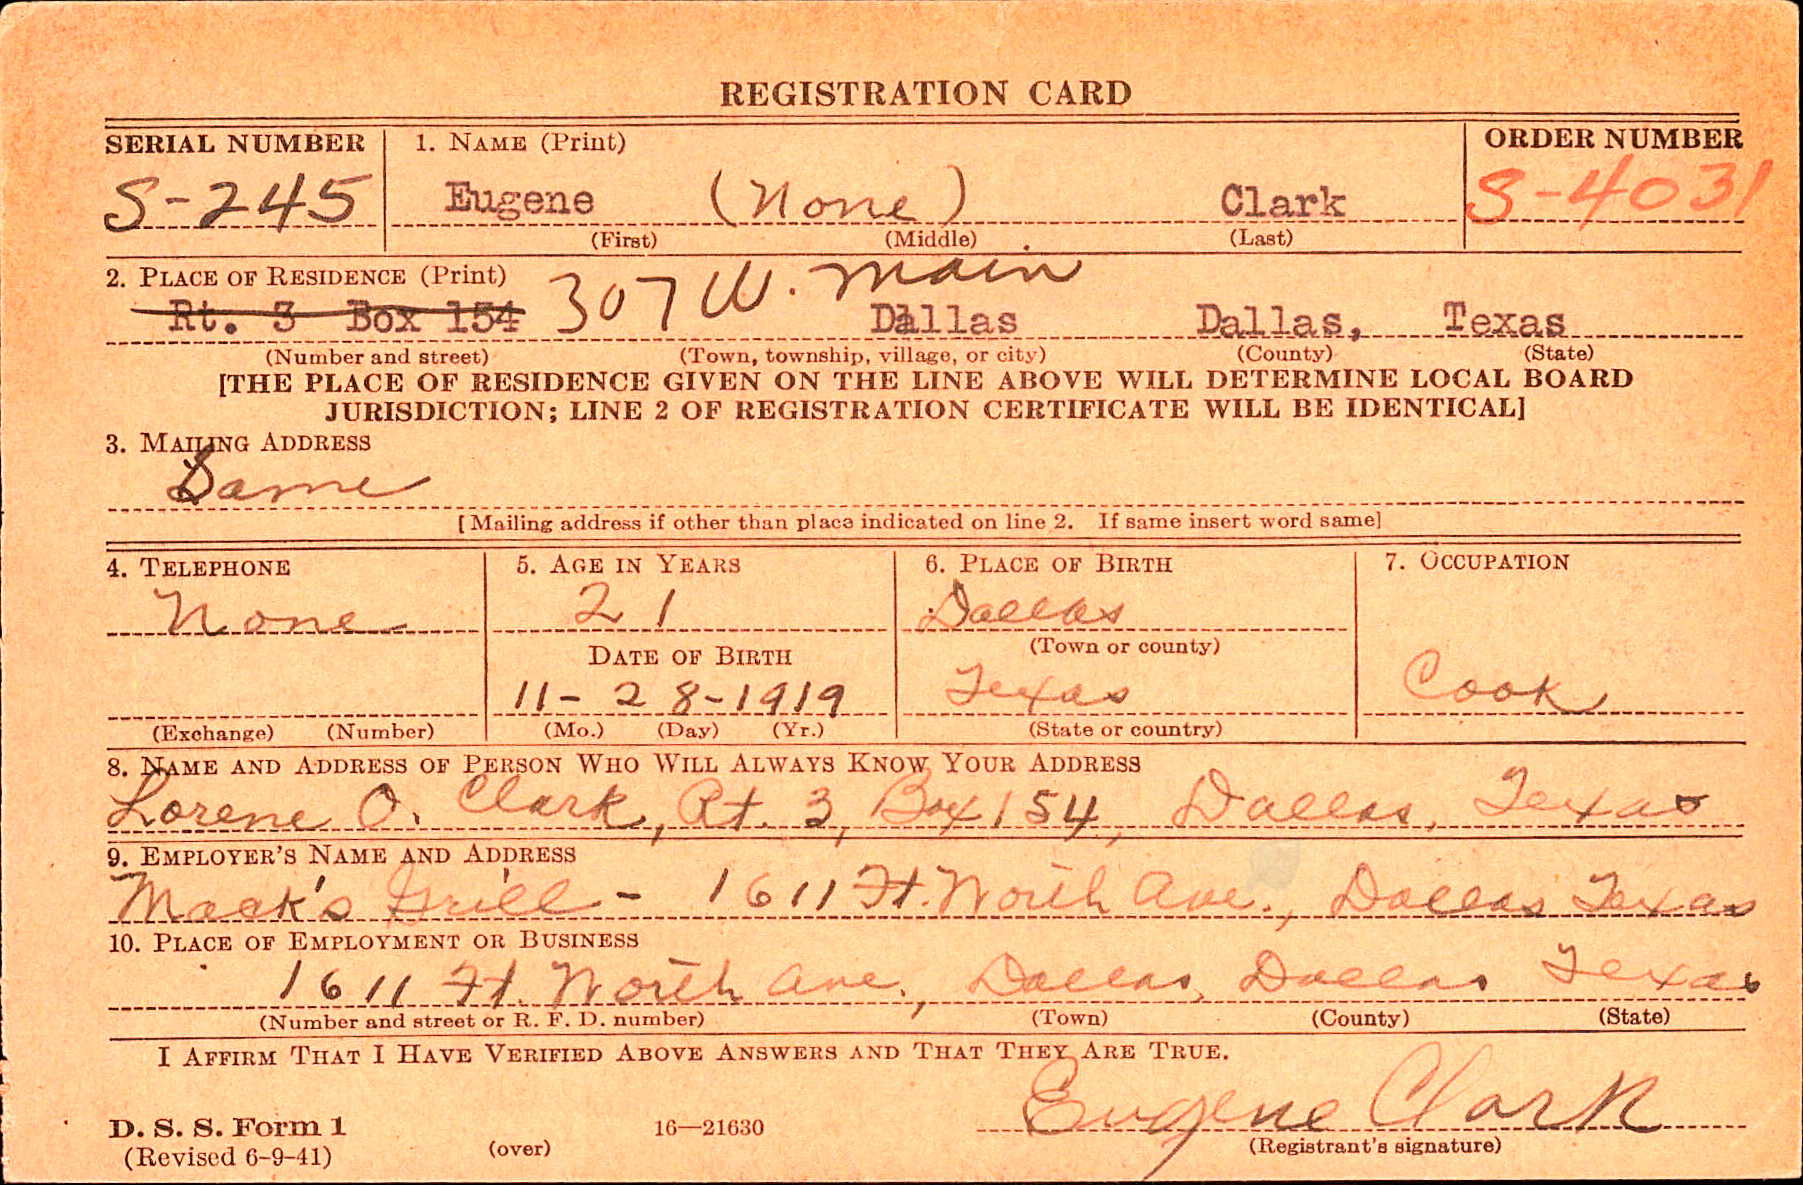 REGISTRATION CARD
SERIAL NUMBER 1. NAME (Print) ORDER NUMBER
S-245 Eugene (None) Clark S-4031
(First) (Middle) (Last)
2. PLACE OF RESIDENCE (Print)
Rt. 3 Box 154 307 W. Main Dallas Dallas, Texas
(Number and street) (Town, township, village, or city) (County) (State)
[THE PLACE OF RESIDENCE GIVEN ON THE LINE ABOVE WILL DETERMINE LOCAL BOARD
JURISDICTION; LINE 2 OF REGISTRATION CERTIFICATE WILL BE IDENTICAL]
3. MAILING ADDRESS
Same
[Mailing address if other than place indicated on line 2. If same insert word same]
4. TELEPHONE 5. AGE IN YEARS 6. PLACE OF BIRTH 7. OCCUPATION
None 21 Dallas
(Town or county)
DATE OF BIRTH
11-28-1919 Texas Cook
(Exchange) (Number) (Mo.) (Day) (Yr.) (State or country)
8. NAME AND ADDRESS OF PERSON WHO WILL ALWAYS KNOW YOUR ADDRESS
Lorene O. Clark, Rt. 3, Box 154, Dallas, Texas
9. EMPLOYER'S NAME AND ADDRESS
Mack's Grill - 1611 Ft. Worth Ave., Dallas Texas
10. PLACE OF EMPLOYMENT OR BUSINESS
1611 Ft. Worth Ave., Dallas, Dallas Texas
(Number and street or R. F. D. number) (Town) (County) (State)
I AFFIRM THAT I HAVE VERIFIED ABOVE ANSWERS AND THAT THEY ARE TRUE.
Eugene Clark
D. S. S. Form 1 16—21630
(Revised 6-9-41) (over) (Registrant's signature)